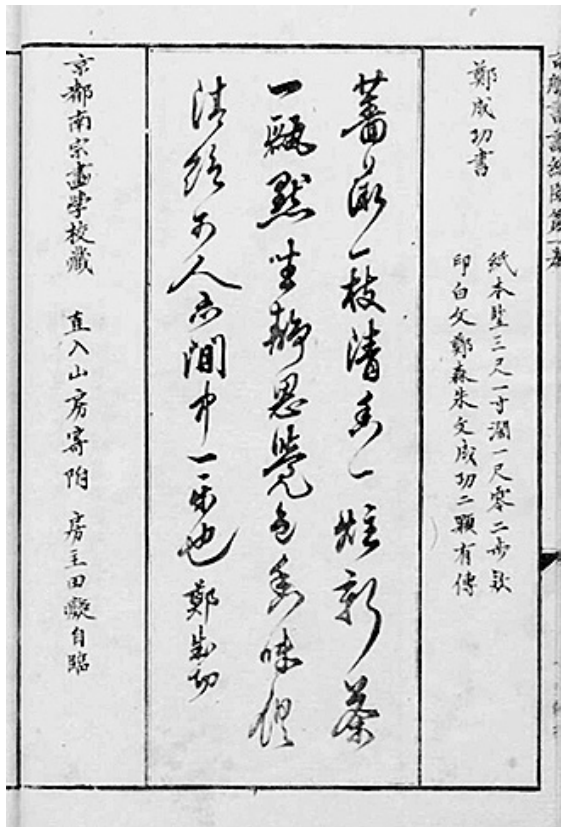 鄭成功書
紙本竪三尺一寸濶一尺零二步款
印白文鄭森朱文成功二顆有傳
薔薇一枝清香一炷新茶
一甌默坐靜思覺色香味俱
清絶可人亦閒中一樂也 鄭成功
京都南宗畫學校藏 直入山房寄附 房主田癡自臨